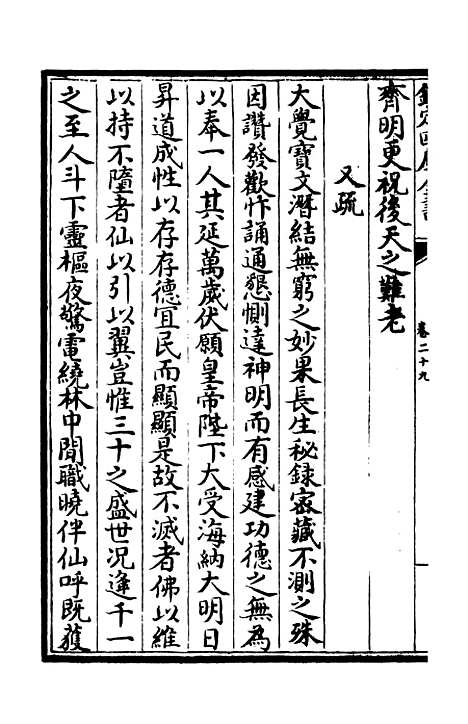 欽定四庫全書
卷二十九
齊明更祝後天之難老
又疏
大覺寶文潛結無窮之妙果長生秘録宻藏不測之殊
因讚發歡忭誦通懇惻達神明而有感建功德之無為
以奉一人其延萬歲伏願皇帝陛下大受海納大明日
昇道成性以存存德宜民而顯顯是故不滅者佛以維
以持不墮者仙以引以翼豈惟三十之盛世况逢千一
之至人斗下靈樞夜驚電繞林中閒職曉伴仙呼既獲